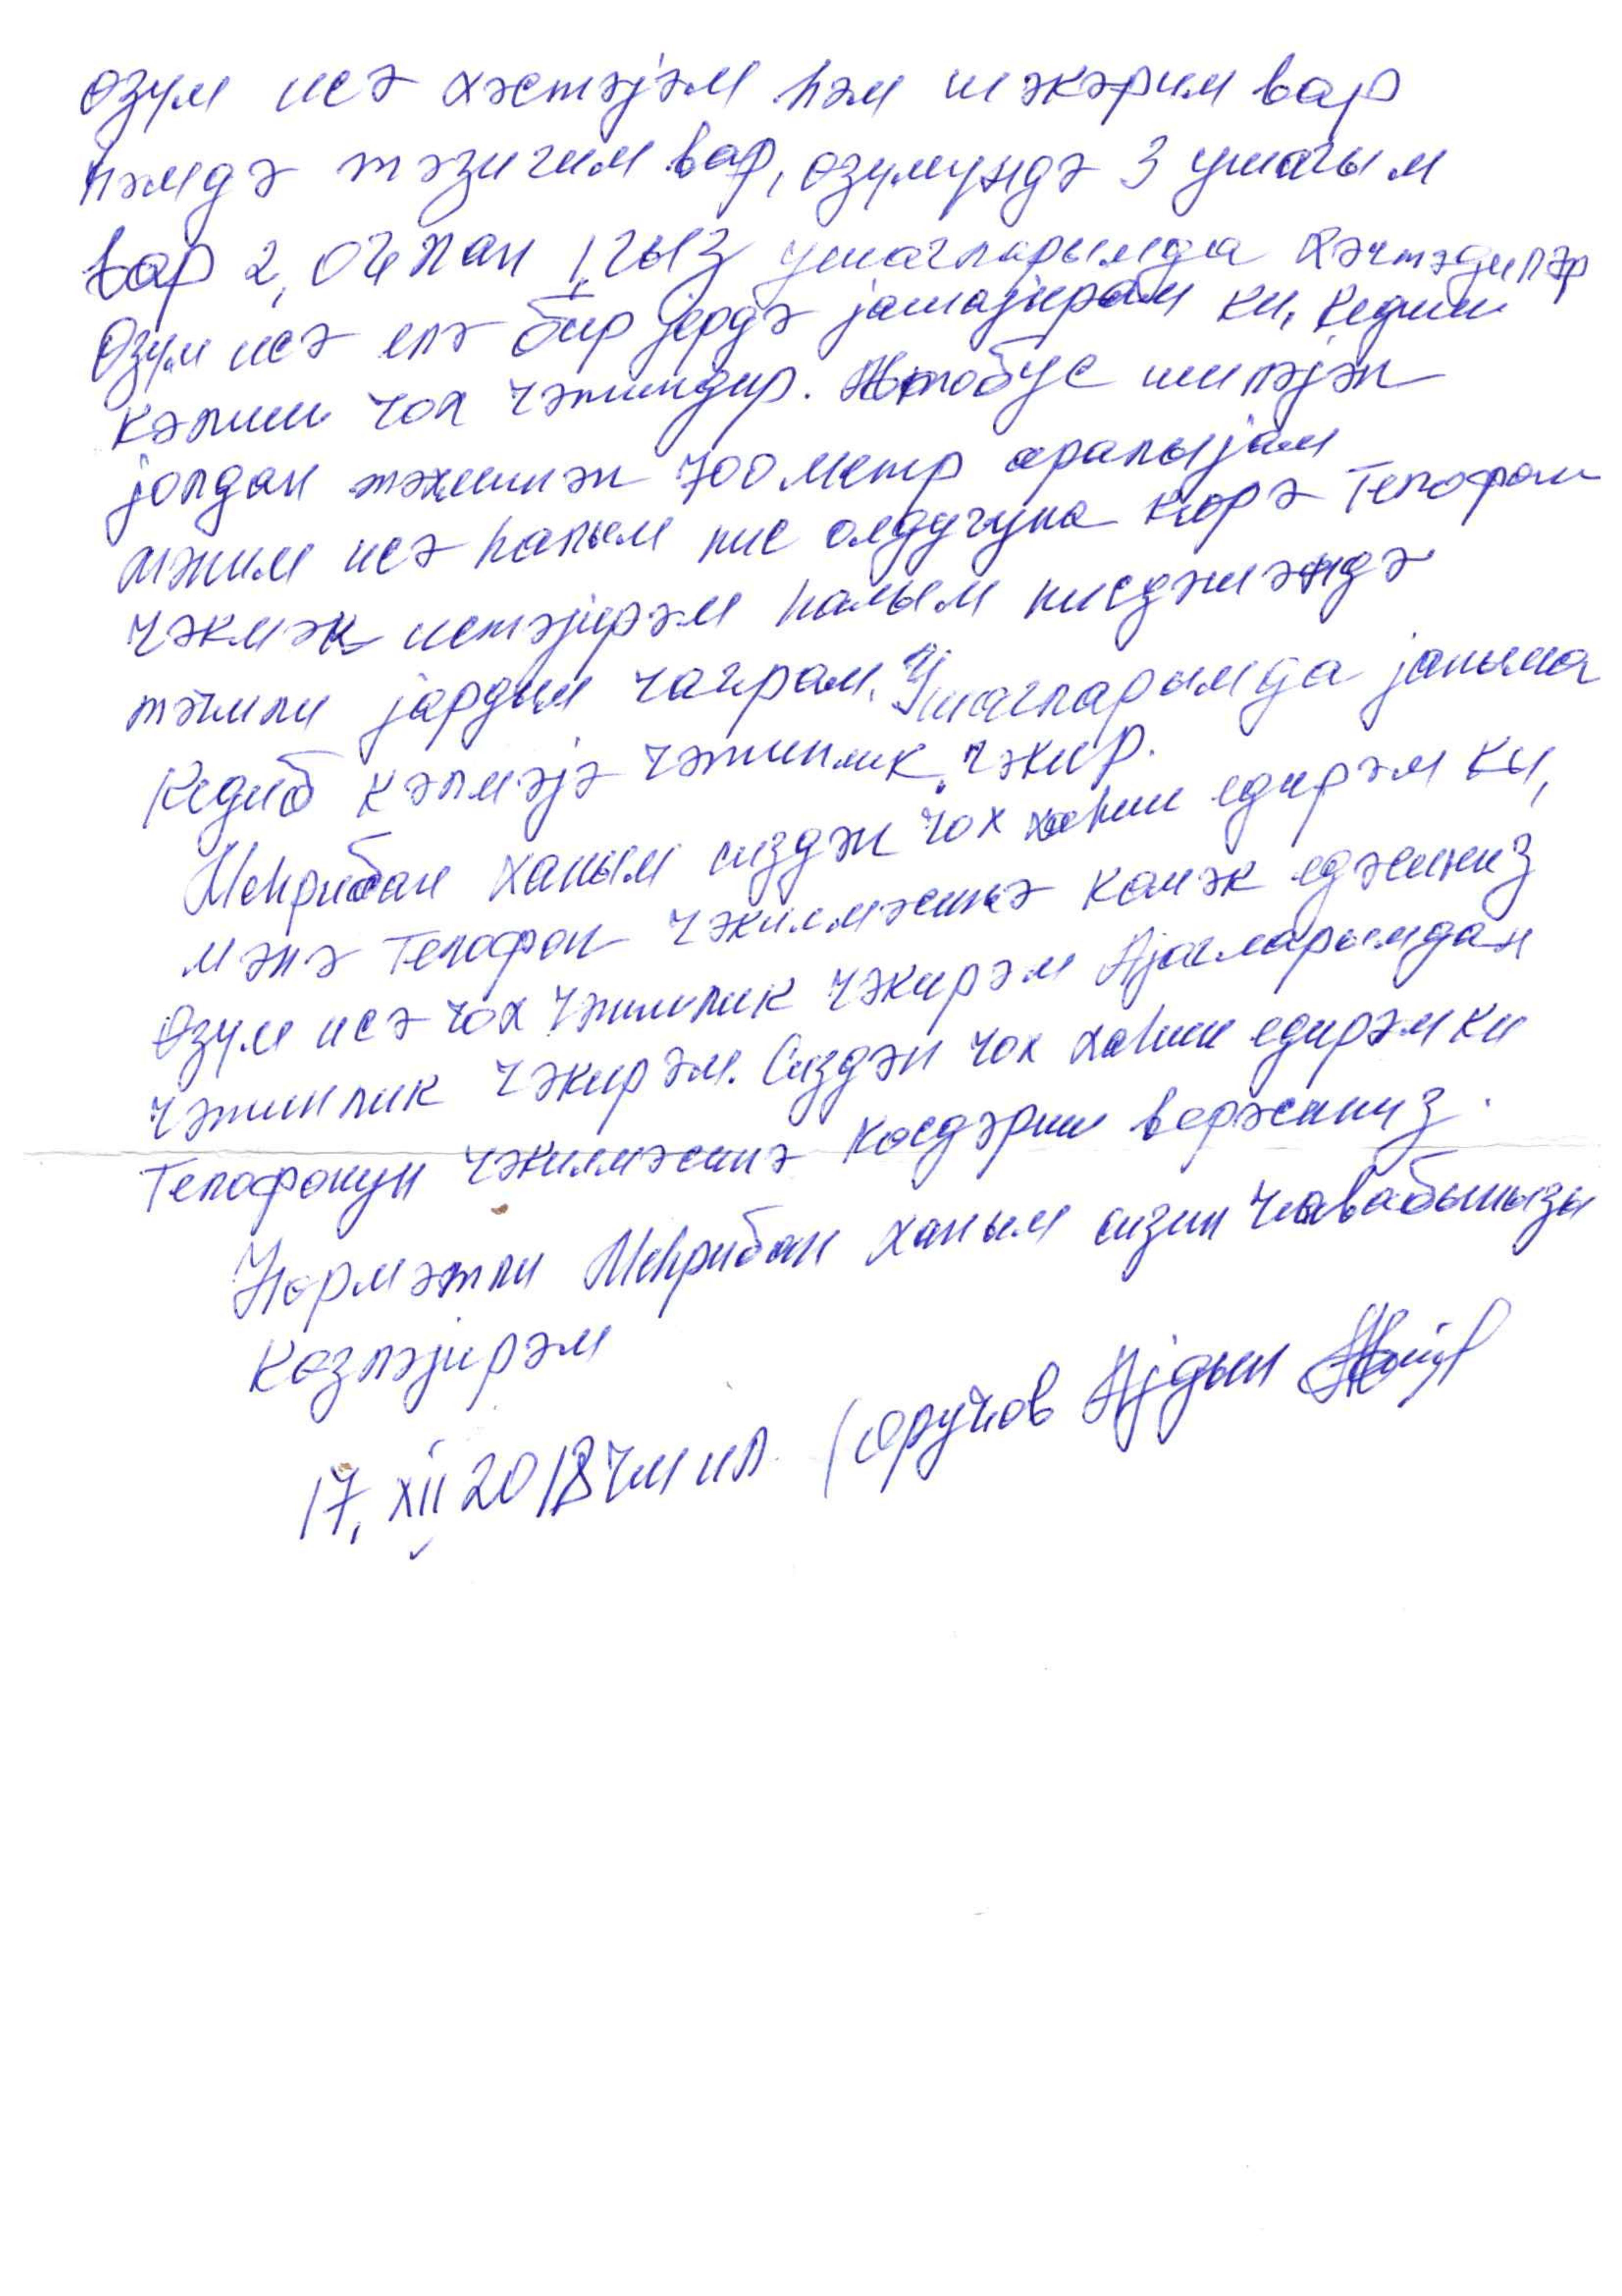 өзүм исә хәстәјәм һәм шәкәрим вар
һәмдә тәзигим вар, өзүмүндә 3 ушағым
вар 2, оғлан 1, гыз ушагларымда хәстәдиләр
Өзүм исә елә бир јердә јашајырам ки, кедиш
кәлиш чох чәтиндир. Автобус ишләјән
јолдан тәхминән 700 метр аралыјам
мәним исә һалым пис олдуғуна көрә Телефон
чәкмәк истәјирәм һалым писдәшәндә
тәчили јардым чаграм. Ушагларымда јаныма
Кедиб кәлмәјә чәтинлик чәкир.
Меһрибан ханым сиздән чох хаһиш едирәм ки,
мәнә Телефон чәкилмәсинә көмәк едәсиниз
Өзүм исә чох чәтинлик чәкирәм Ајагларымдан
чәтинлик чәкирәм. Сиздән чох хаһиш едирәм ки
Телефонун чәкилмәсинә көсдәриш верәсиниз.
Һөрмәтли Меһрибан ханым сизин чавабынызы
Көзләјирәм
17. XII 2018 чи ил. (Оручов Ајдын